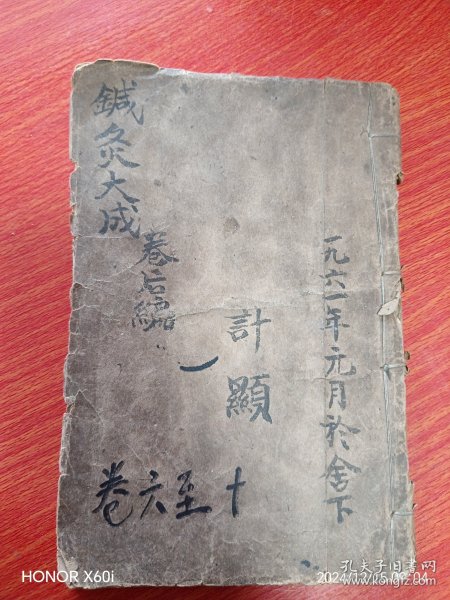 鍼灸大成
卷后編
計顯
一九六一年元月於舍下
卷六至十
HONOR X60i
孔夫子旧书网